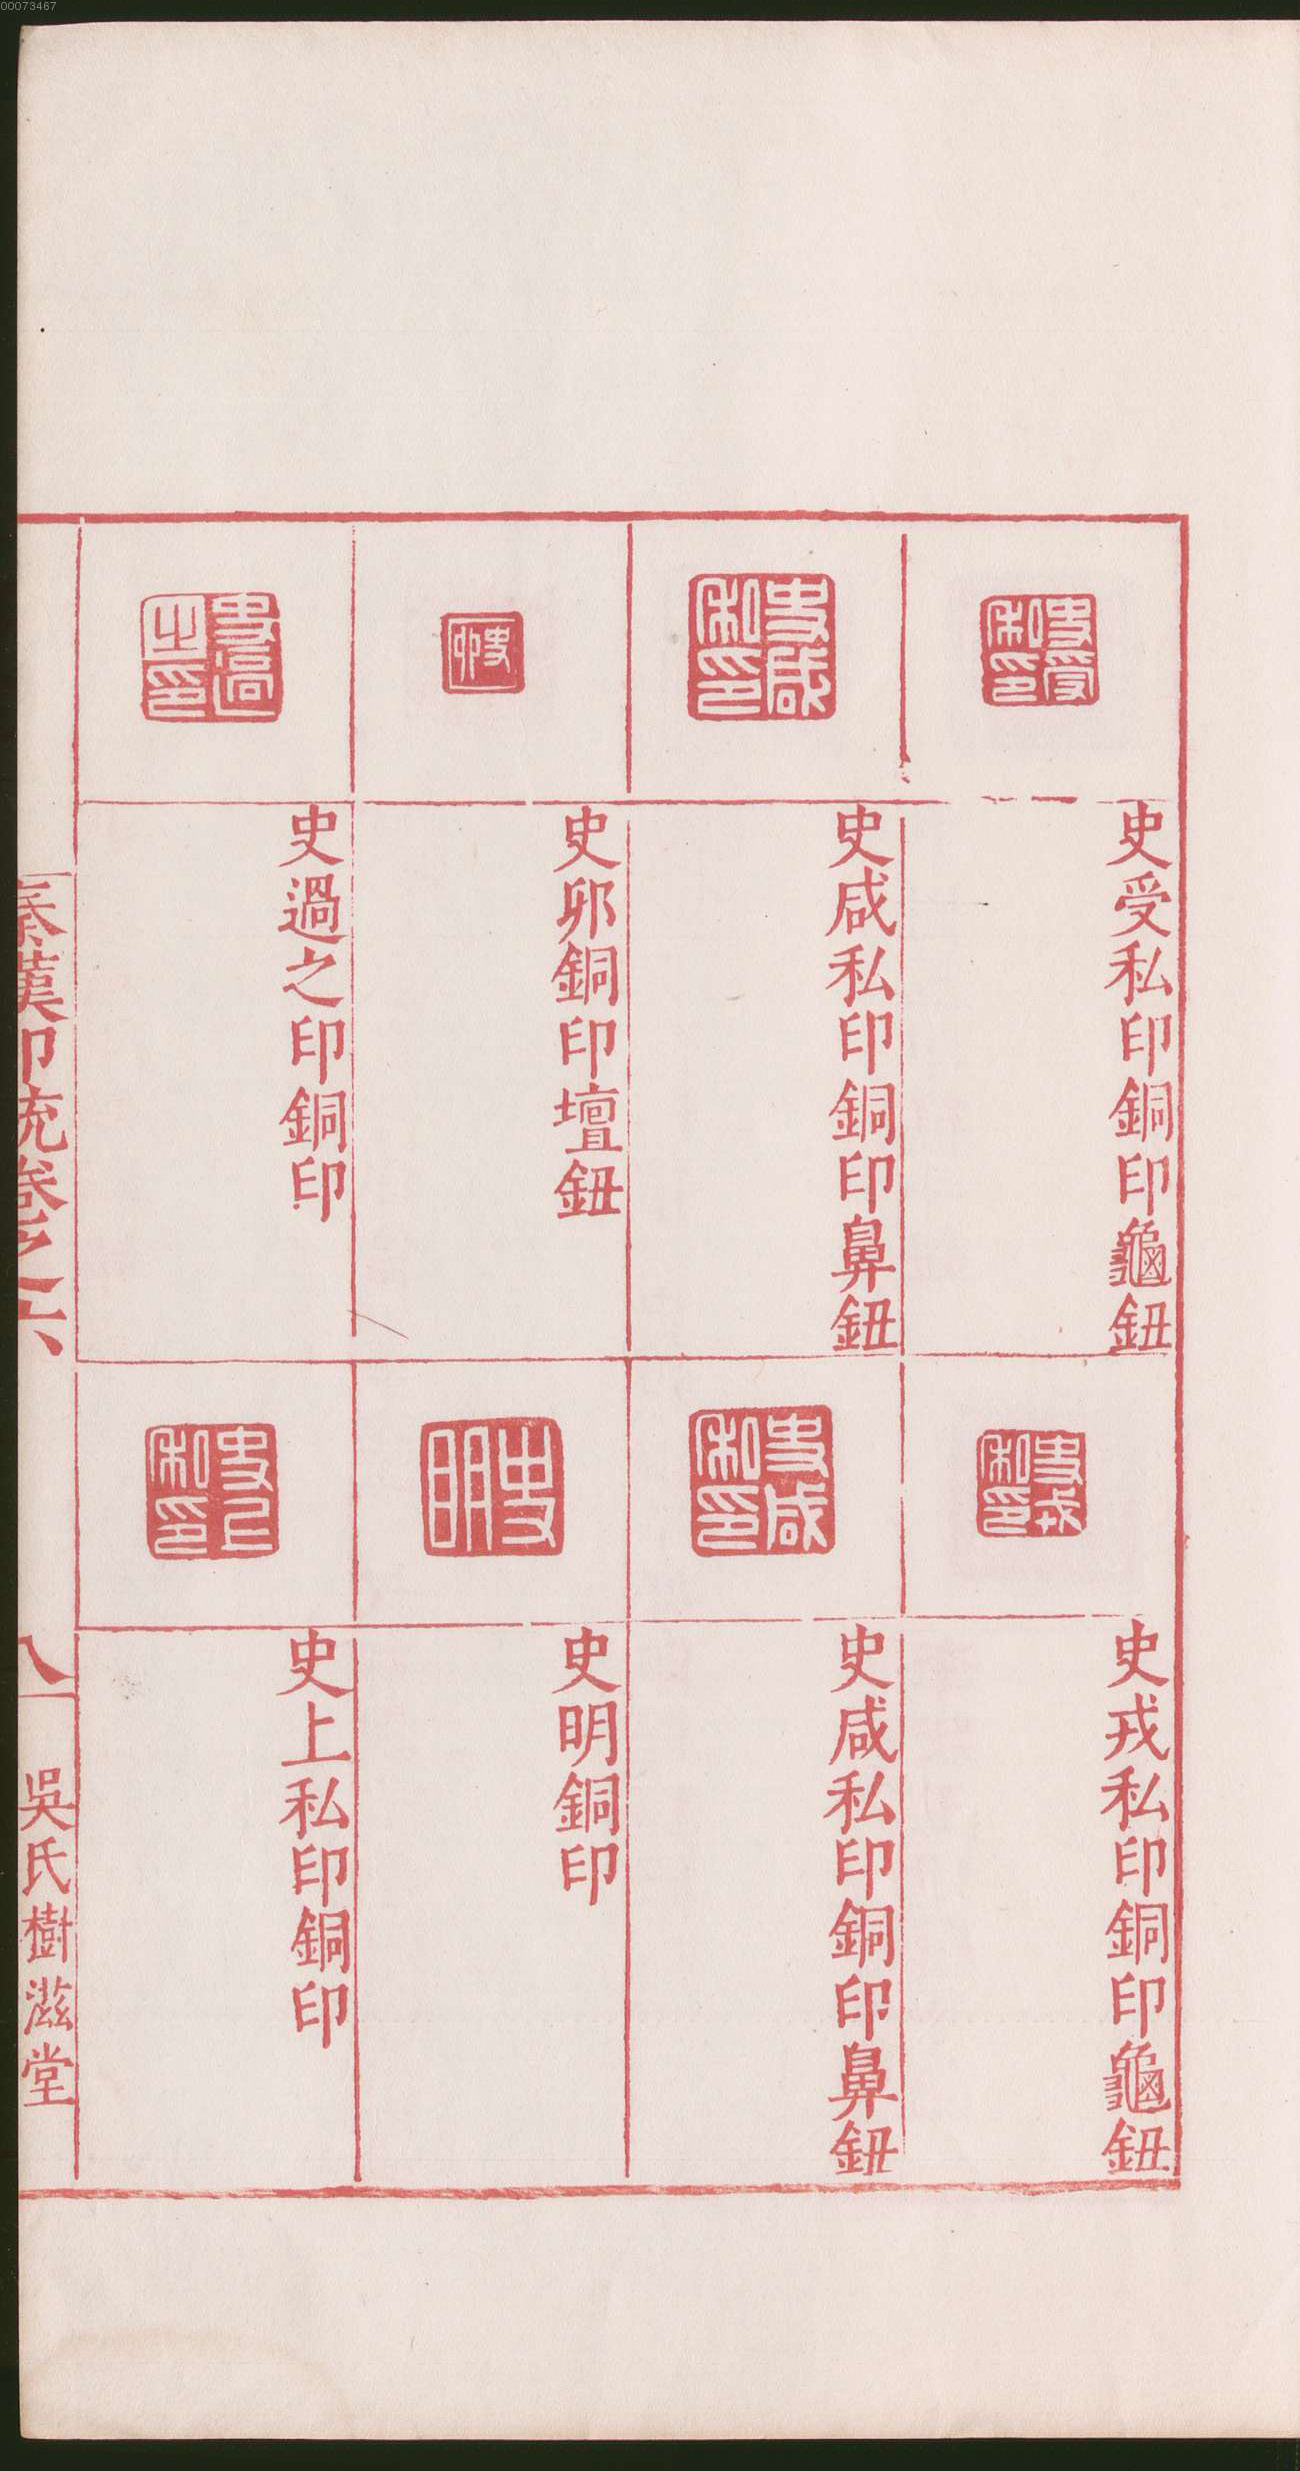 00073467
史受私印
史受私印銅印龜鈕
史咸私印
史咸私印銅印鼻鈕
史卯
史卯銅印壇鈕
史過之印
史過之印銅印
史戎私印
史戎私印銅印龜鈕
史咸私印
史咸私印銅印鼻鈕
史明
史明銅印
史上私印
史上私印銅印
秦漢印統卷之六
八
吳氏樹滋堂